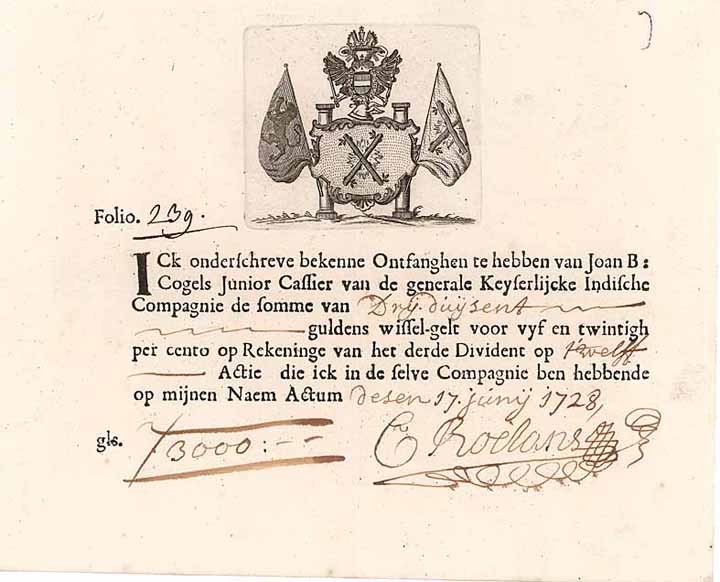 Folio. 239.
ICk onderschreve bekenne Ontfanghen te hebben van Joan B:
Cogels Junior Cassier van de generale Keyserlijcke Indische
Compagnie de somme van Drij duijsent
guldens wissel-gelt voor vyf en twintigh
per cento op Rekeninge van het derde Divident op twelff
Actie die ick in de selve Compagnie ben hebbende
op mijnen Naem Actum desen 17. junij 1728,
gls. 3000:--
C Roelans